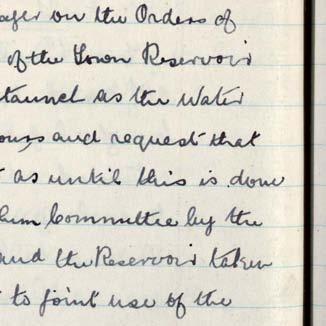 on the Orders of
of the Town Reservoir
as the Water
and request that
as until this is done
Committee by the
and the Reservoir taken
to joint use of the